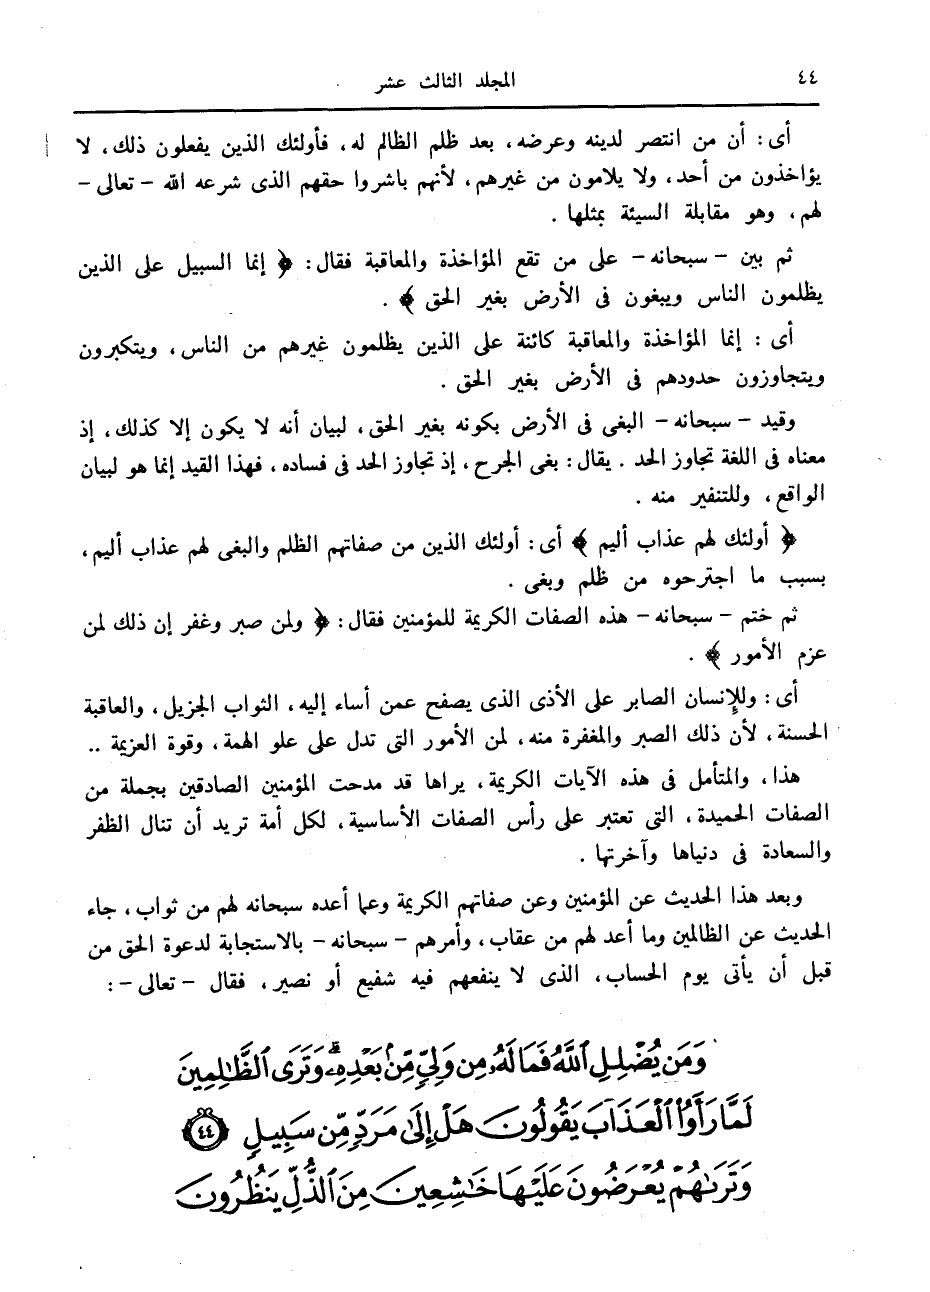 ٤٤
المجلد الثالث عشر
أى : أن من انتصر لدينه وعرضه ، بعد ظلم الظالم له ، فأولئك الذين يفعلون ذلك ، لا
يؤاخذون من أحد ، ولا يلامون من غيرهم ، لأنهم باشروا حقهم الذى شرعه الله – تعالى –
لهم ، وهو مقابلة السيئة بمثلها .
ثم بين – سبحانه – على من تقع المؤاخذة والمعاقبة فقال : ﴿ إنما السبيل على الذين
يظلمون الناس ويبغون فى الأرض بغير الحق ﴾ .
أى : إنما المؤاخذة والمعاقبة كائنة على الذين يظلمون غيرهم من الناس ، ويتكبرون
ويتجاوزون حدودهم فى الأرض بغير الحق .
وقيد – سبحانه – البغى فى الأرض بكونه بغير الحق ، لبيان أنه لا يكون إلا كذلك ، إذ
معناه فى اللغة تجاوز الحد . يقال : بغى الجرح ، إذ تجاوز الحد فى فساده ، فهذا القيد إنما هو لبيان
الواقع ، وللتنفير منه .
﴿ أولئك لهم عذاب أليم ﴾ أى : أولئك الذين من صفاتهم الظلم والبغى لهم عذاب أليم ،
بسبب ما اجترحوه من ظلم وبغى .
ثم ختم – سبحانه – هذه الصفات الكريمة للمؤمنين فقال : ﴿ ولمن صبر وغفر إن ذلك لمن
عزم الأمور ﴾ .
أى : وللإنسان الصابر على الأذى الذى يصفح عمن أساء إليه ، الثواب الجزيل ، والعاقبة
الحسنة ، لأن ذلك الصبر والمغفرة منه ، لمن الأمور التى تدل على علو الهمة ، وقوة العزيمة ..
هذا ، والمتأمل فى هذه الآيات الكريمة ، يراها قد مدحت المؤمنين الصادقين بجملة من
الصفات الحميدة ، التى تعتبر على رأس الصفات الأساسية ، لكل أمة تريد أن تنال الظفر
والسعادة فى دنياها وآخرتها .
وبعد هذا الحديث عن المؤمنين وعن صفاتهم الكريمة وعما أعده سبحانه لهم من ثواب ، جاء
الحديث عن الظالمين وما أعد لهم من عقاب ، وأمرهم – سبحانه – بالاستجابة لدعوة الحق من
قبل أن يأتى يوم الحساب ، الذى لا ينفعهم فيه شفيع أو نصير ، فقال – تعالى – :
وَمَن يُضْلِلِ ٱللَّهُ فَمَا لَهُۥ مِن وَلِيٍّ مِّنۢ بَعْدِهِۦۗ وَتَرَى ٱلظَّٰلِمِينَ
لَمَّا رَأَوُا۟ ٱلْعَذَابَ يَقُولُونَ هَلْ إِلَىٰ مَرَدٍّ مِّن سَبِيلٍ ٤٤
وَتَرَىٰهُمْ يُعْرَضُونَ عَلَيْهَا خَٰشِعِينَ مِنَ ٱلذُّلِّ يَنظُرُونَ